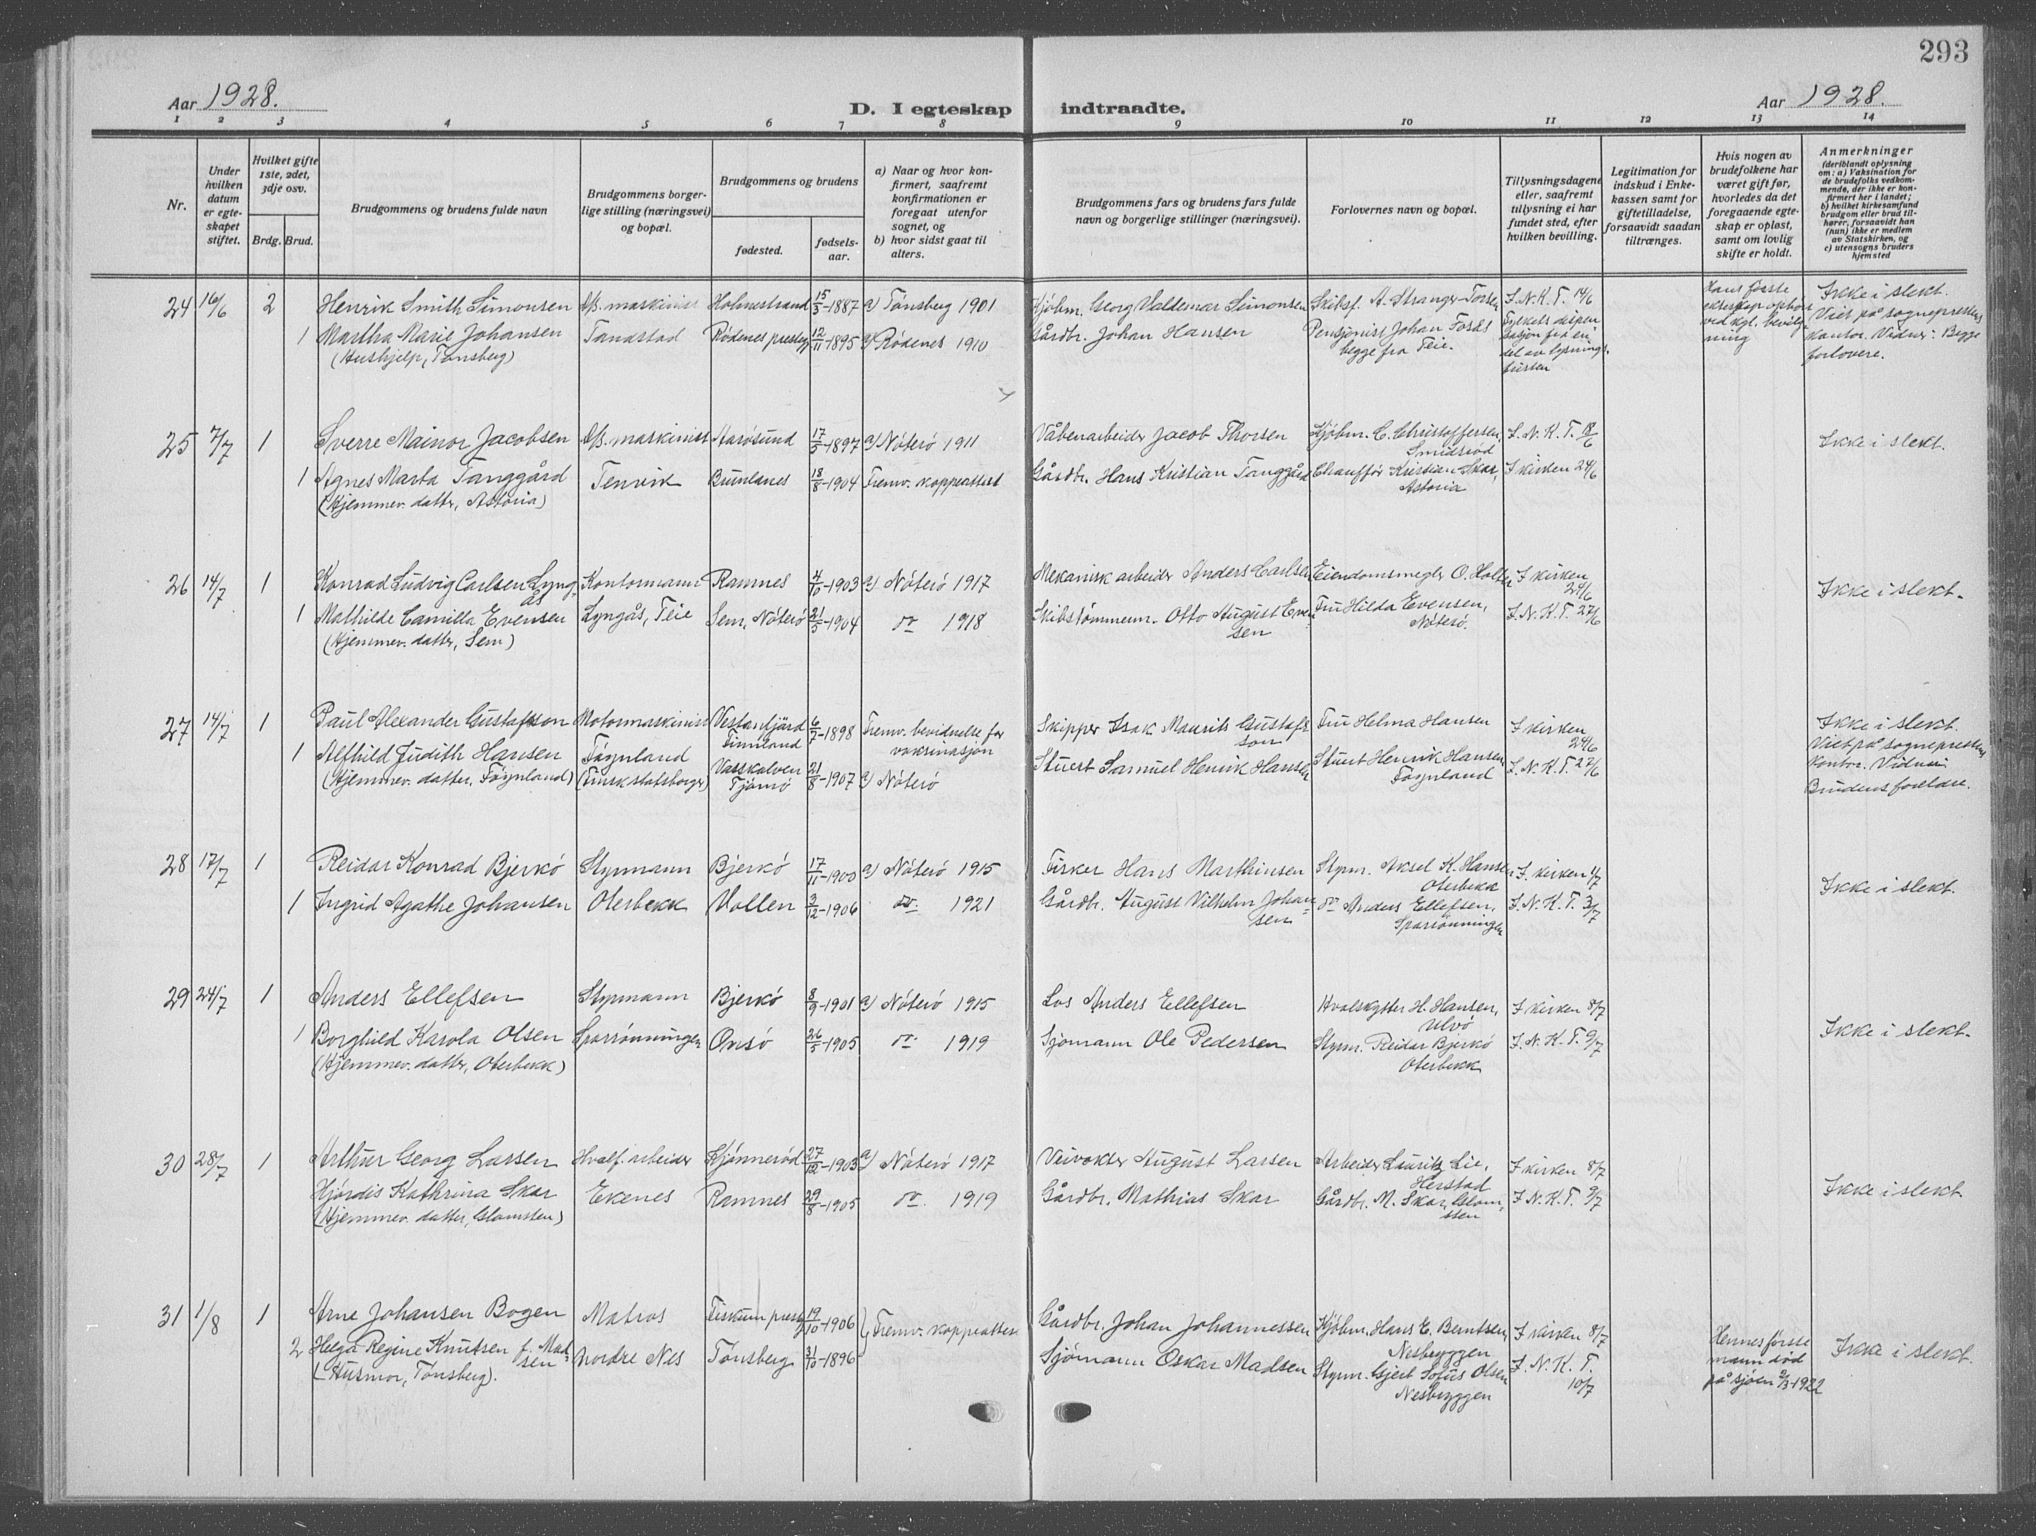 293
Aar 1928.
D. I egteskap indtraadte.
Aar 1928.
1 2 3 4 5 6 7 8 9 10 11 12 13 14
Nr.
Under hvilken datum er egteskapet stiftet.
Hvilket gifte 1ste, 2det, 3dje osv.
Brdg. Brud.
Brudgommens og brudens fulde navn
Brudgommens borgerlige stilling (næringsvei) og bopæl.
Brudgommens og brudens
fødested.
fødselsaar.
a) Naar og hvor konfirmert, saafremt konfirmationen er foregaat utenfor sognet, og
b) hvor sidst gaat til alters.
Brudgommens fars og brudens fars fulde navn og borgerlige stillinger (næringsvei).
Forlovernes navn og bopæl.
Tillysningsdagene eller, saafremt tillysning ei har fundet sted, efter hvilken bevilling.
Legitimation for indskud i Enkekassen samt for giftetilladelse, forsaavidt saadan tiltrænges.
Hvis nogen av brudefolkene har været gift før, hvorledes da det foregaaende egteskap er opløst, samt om lovlig skifte er holdt.
Anmerkninger
(deriblandt oplysning om: a) Vaksination for de brudefolks vedkommende, der ikke er konfirmert her i landet; b) hvilket kirkesamfund brudgom eller brud tilhører, forsaavidt han (hun) ikke er medlem av Statskirken, og c) utensogns bruders hjemsted
24 16/6 2 Henrik Smith Simonsen Ass. maskinist Holmestrand 15/3-1887 a) Tønsberg 1901 Kjøbm. Georg Valdemar Simonsen Skibsf. A. Stranger-Torsen I. N. K. T. 14/6
1 Martha Marie Johansen Tandstad Rødenes prestegj. 12/11-1895 a) Rødenes 1910 Gårdbr. Johan Hansen Pensjonist Johan Forås
(Hushjelp, Tønsberg) begge fra Teie.
Fylkets dispensasjon fra en del av lysningsfristen
Hans første ekteskap opløst ved kgl. bevilgning
Ikke i slekt. Viet på sogneprestens kontor. Vidner: Begge forlovere.
25 7/7 1 Sverre Mainor Jacobsen Ass. maskinist Aarøsund 17/5-1897 a) Nøterø 1911 Våbenarbeider Jacob Thorsen Kjøbm. C. Christoffersen, Smidsrød I. N. K. T. 18/6 Ikke i slekt.
1 Agnes Marta Tanggård Tenvik Buinlanes 18/8-1904 Fremv. koppeattest Gårdbr. Hans Kristian Tanggård Chauffør Kristian Skar, Astoria I kirken 24/6
(Hjemmev. datter, Astoria)
26 14/7 1 Konrad Ludvig Carlsen Lyngås Kontormann Ramnes 4/10-1903 a) Nøterø 1917 Mekanisk arbeider Anders Carlsen Eiendomsmegler O. Holter I kirken 24/6 Ikke i slekt.
1 Mathilde Camilla Evensen Lyngås, Teie Sem, Nøterø 21/5-1904 do 1918 Skibstømmerm. Otto August Evensen Fru Hilda Evensen, Nøterø. I. N. K. T. 27/6
(Hjemmev. datter, Sem)
27 14/7 1 Paul Alexander Gustafsson Motormaskinist Vestanfjärd Finnland 6/7-1898 Fremv. bevidnelse for vaksinasjon Skipper Isak Maurits Gustafsson Fru Helma Hansen I kirken 24/6
1 Alfhild Judith Hansen Føynland Vasskalven Tjømø 21/8-1907 a) Nøterø Stuert Samuel Henrik Hansen Stuert Henrik Hansen Føynland I. N. K. T. 27/6
(Hjemmev. datter, Føynland) (Finsk statsborger)
Ikke i slekt. Viet på sogneprestens kontor. Vidner: Brudens foreldre.
28 17/7 1 Reidar Konrad Bjerkø Styrmann Bjerkø 17/11-1900 a) Nøterø 1915 Fisker Hans Marthinsen Styrm. Aksel K. Hansen Oterbekk I. kirken 1/7 Ikke i slekt.
1 Ingrid Agathe Johansen Oterbekk Vollen 2/12-1906 do. 1921 Gårdbr. August Vilhelm Johansen do Anders Ellefsen, Sparrønningen I. N. K. T. 3/7
29 24/7 1 Anders Ellefsen Styrmann Bjerkø 8/9-1901 a) Nøterø 1915 Los Anders Ellefsen Hvalskytter H. Hansen, Ulvø I kirken 8/7 Ikke i slekt.
1 Borghild Karola Olsen Sparrønningen Onsø 26/5-1905 do: 1919 Sjømann Ole Pedersen Styrm. Reidar Bjerkø Oterbekk I. N. K. T. 9/7
(Hjemmev. datter, Oterbekk)
30 28/7 1 Arthur Georg Larsen Hvalf. arbeider Kjønnerød 27/12-1903 a) Nøterø 1917 Veivokter August Larsen Arbeider Lauritz Lie, Herstad I kirken 8/7 Ikke i slekt.
Hjördis Kathrina Skar Ekenes Ramnes 29/8-1905 do. 1919 Gårdbr. Mathias Skar Gårdbr. M. Skar, Glomssen I. N. K. T. 9/7
(Hjemmev. datter, Glomsten)
31 1/8 1 Arne Johansen Bogen Matros Fiskum prestegj. 19/10-1906 Fremv. koppeattester Gårdbr. Johan Johannessen Kjøbm. Hans E. Berntsen, Nesbryggen I kirken 8/7
2 Helga Regine Knutsen f. Madsen Nordre Nes Tønsberg 31/10-1896 Sjømann Oskar Madsen Styrm. Gjert Sofus Olsen Nesbryggen I. N. K. T. 10/7
(Husmor, Tønsberg).
Hennes første mann død på sjøen 9/3-1922
Ikke i slekt.